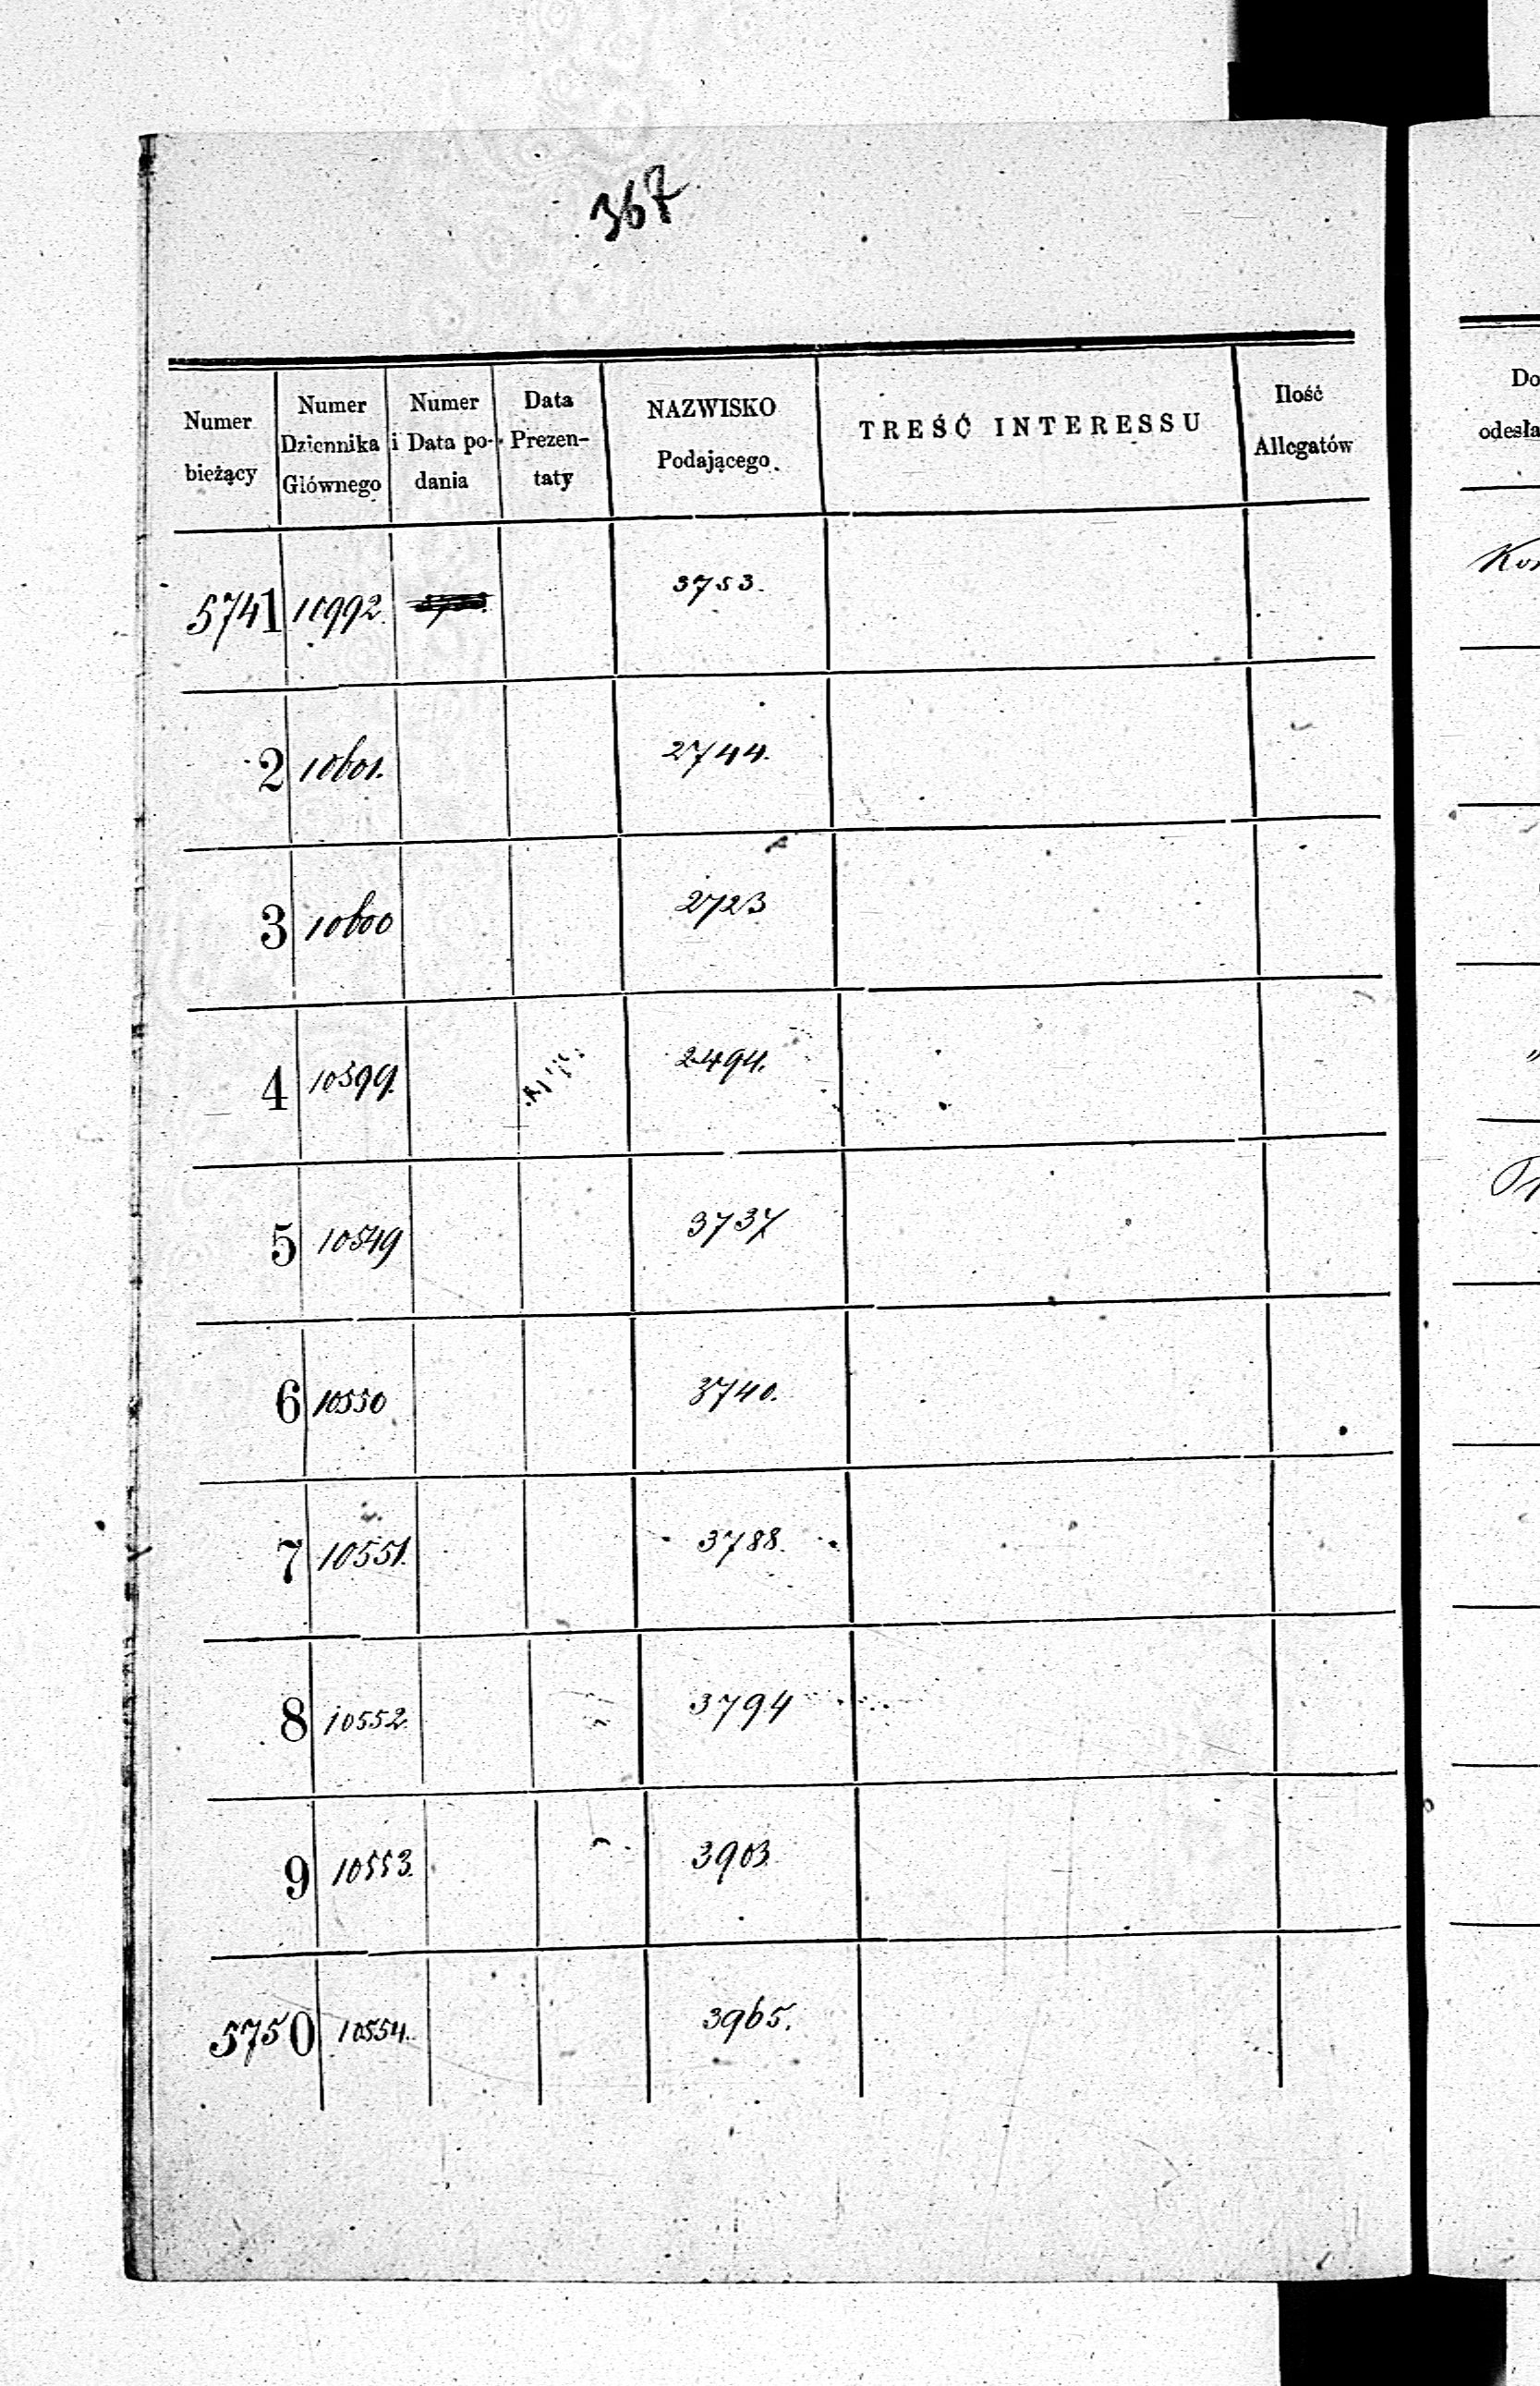 367
Numer bieżący | Numer Dziennika Głównego | Numer i Data podania | Data Prezentaty | NAZWISKO Podającego. | TREŚĆ INTERESSU | Ilość Allegatów
5741 | 11992. | | | 3753.
2 | 10601. | | | 2744.
3 | 10600 | | | 2723
4 | 10599. | | | 2494.
5 | 10549 | | | 3737
6 | 10550 | | | 3740.
7 | 10551. | | | 3788.
8 | 10552. | | | 3794
9 | 10553. | | | 3903.
5750 | 10554. | | | 3965.